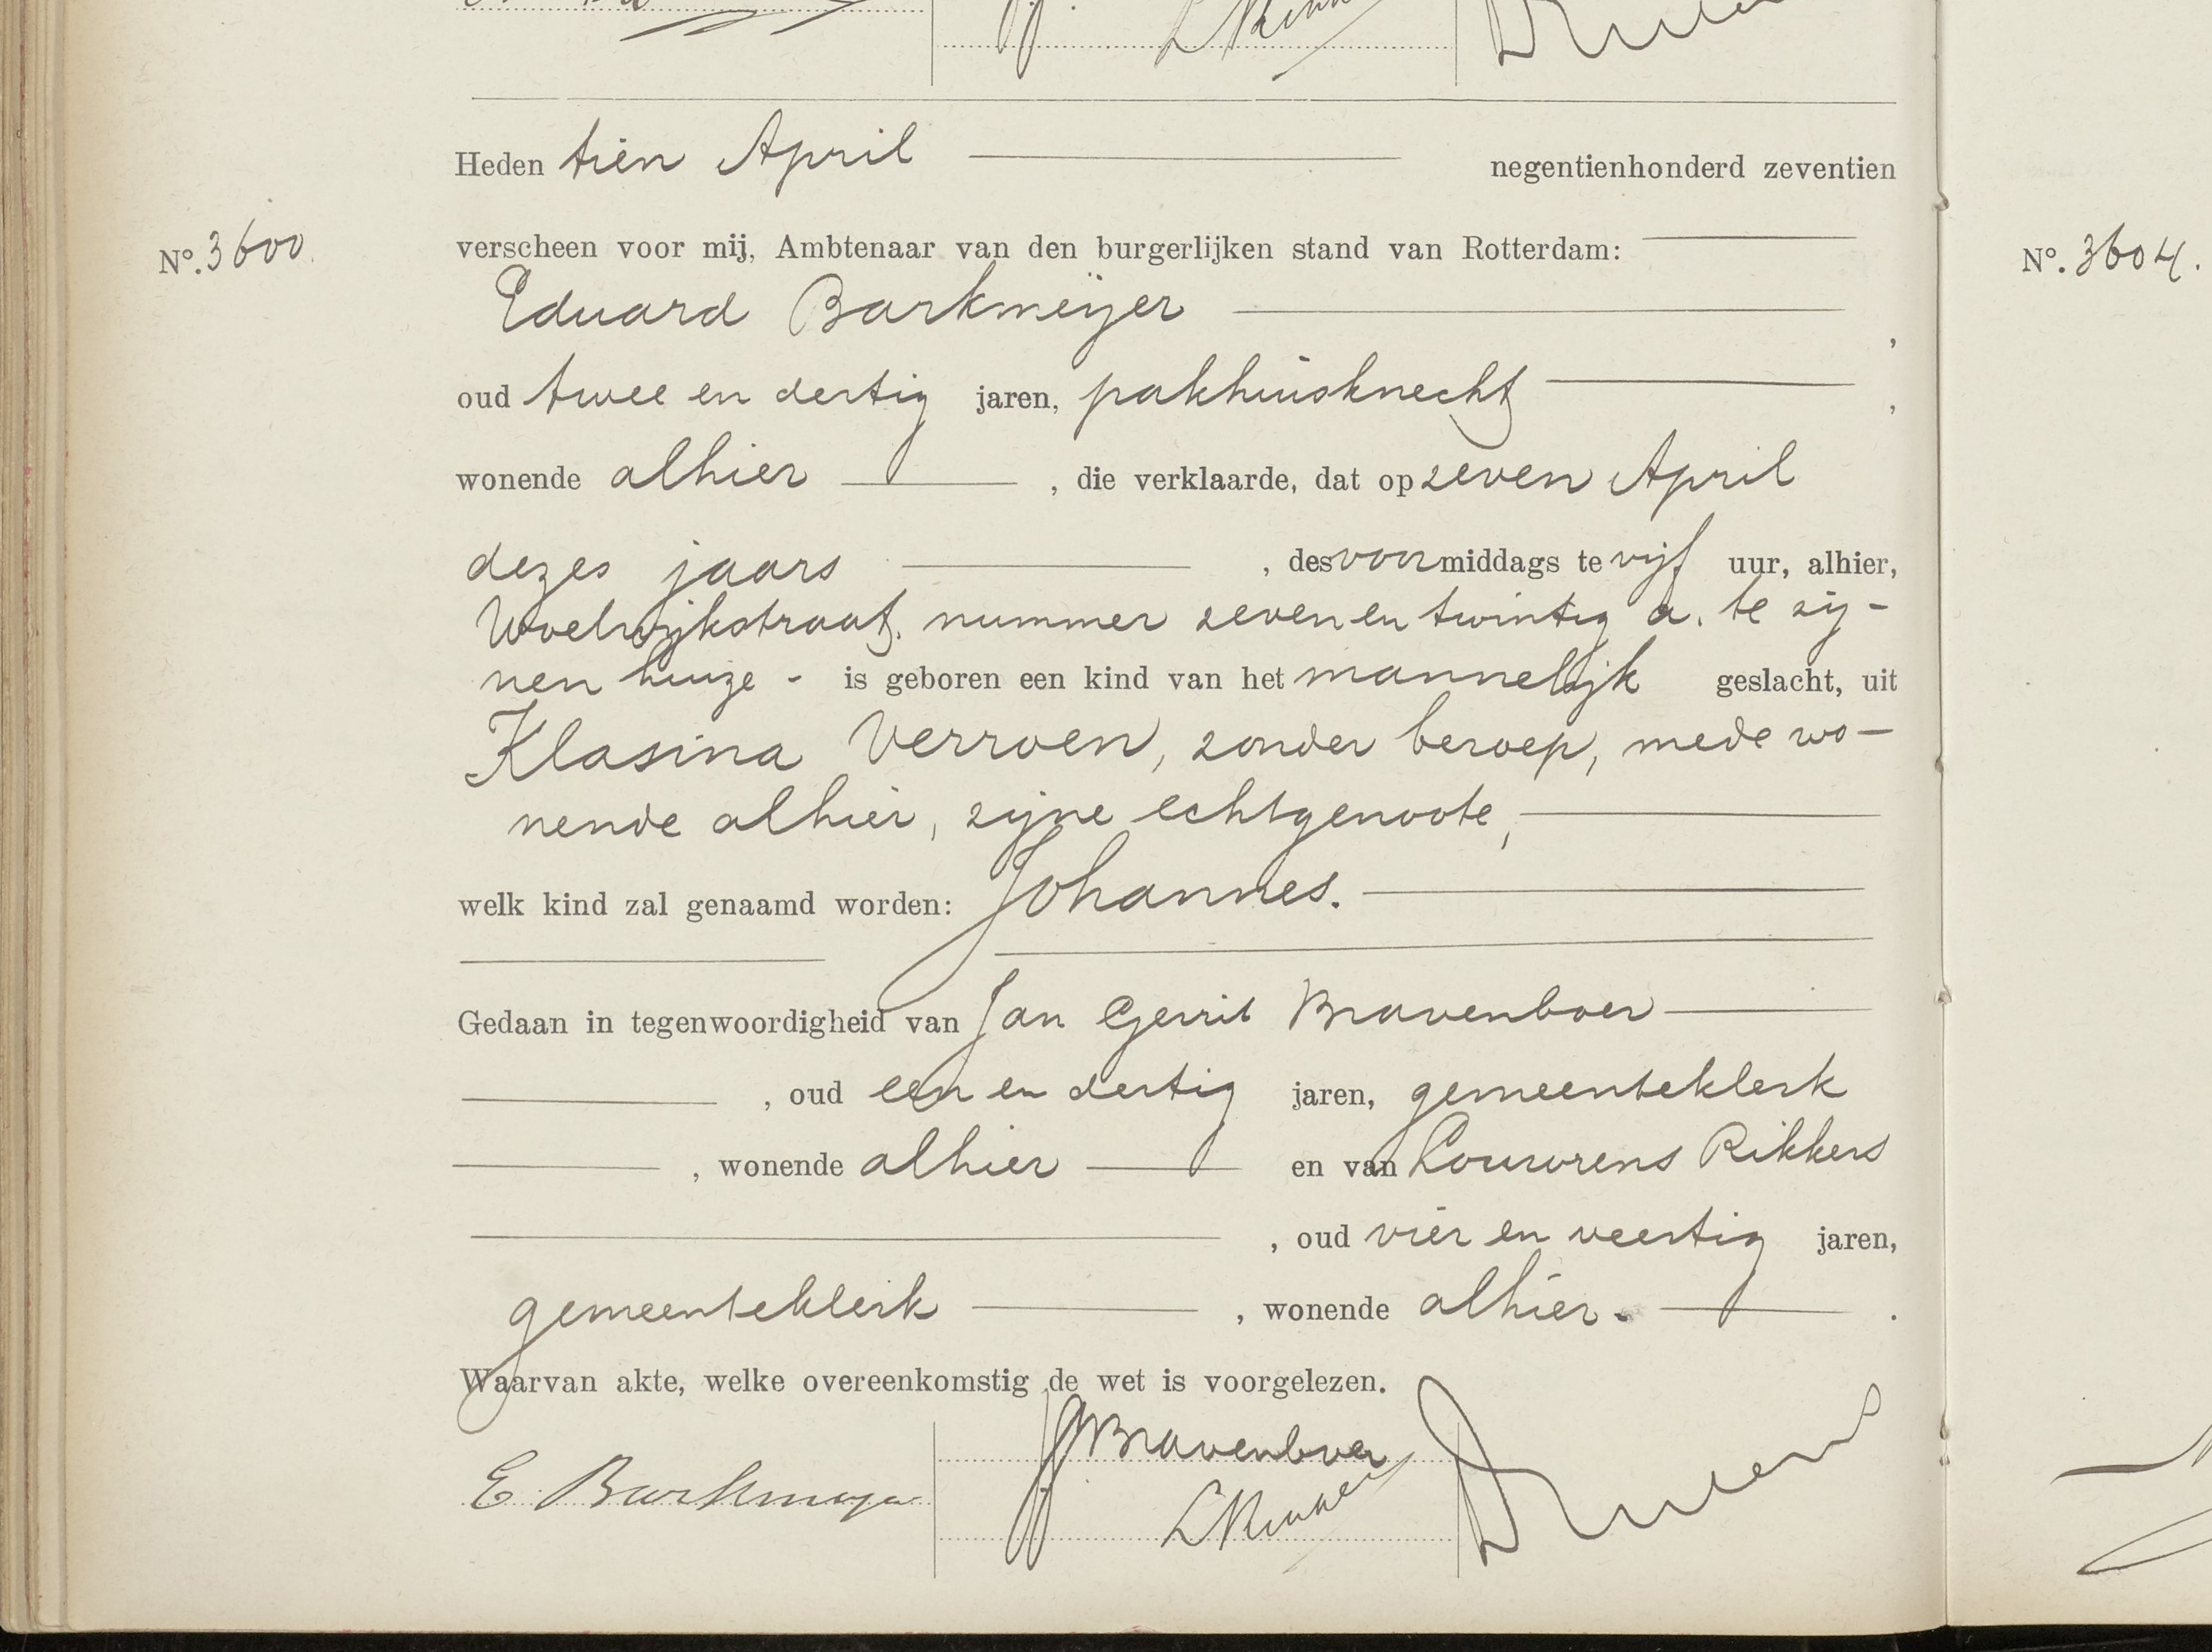 Heden tien April negentienhonderd zeventien
No. 3600
verscheen voor mij, Ambtenaar van den burgerlijken stand van Rotterdam:
Eduard Barkmeijer ,
oud twee en dertig jaren, pakhuisknecht ,
wonende alhier , die verklaarde, dat op zeven April
dezes jaars , des voormiddags te vijf uur, alhier,
Woelwijkstraat, nummer zeven en twintig a. te zij-
nen huize - is geboren een kind van het mannelijk geslacht, uit
Klasina Verroen, zonder beroep, mede wo-
nende alhier, zijne echtgenoote,
welk kind zal genaamd worden: Johannes.
Gedaan in tegenwoordigheid van Jan Gerrit Bravenboer
, oud een en dertig jaren, gemeenteklerk
, wonende alhier en van Lourens Rikkers
, oud vier en veertig jaren,
gemeenteklerk , wonende alhier. .
Waarvan akte, welke overeenkomstig de wet is voorgelezen.
JGBravenboer
E Barkmeyer
LRikkers
No. 3604.